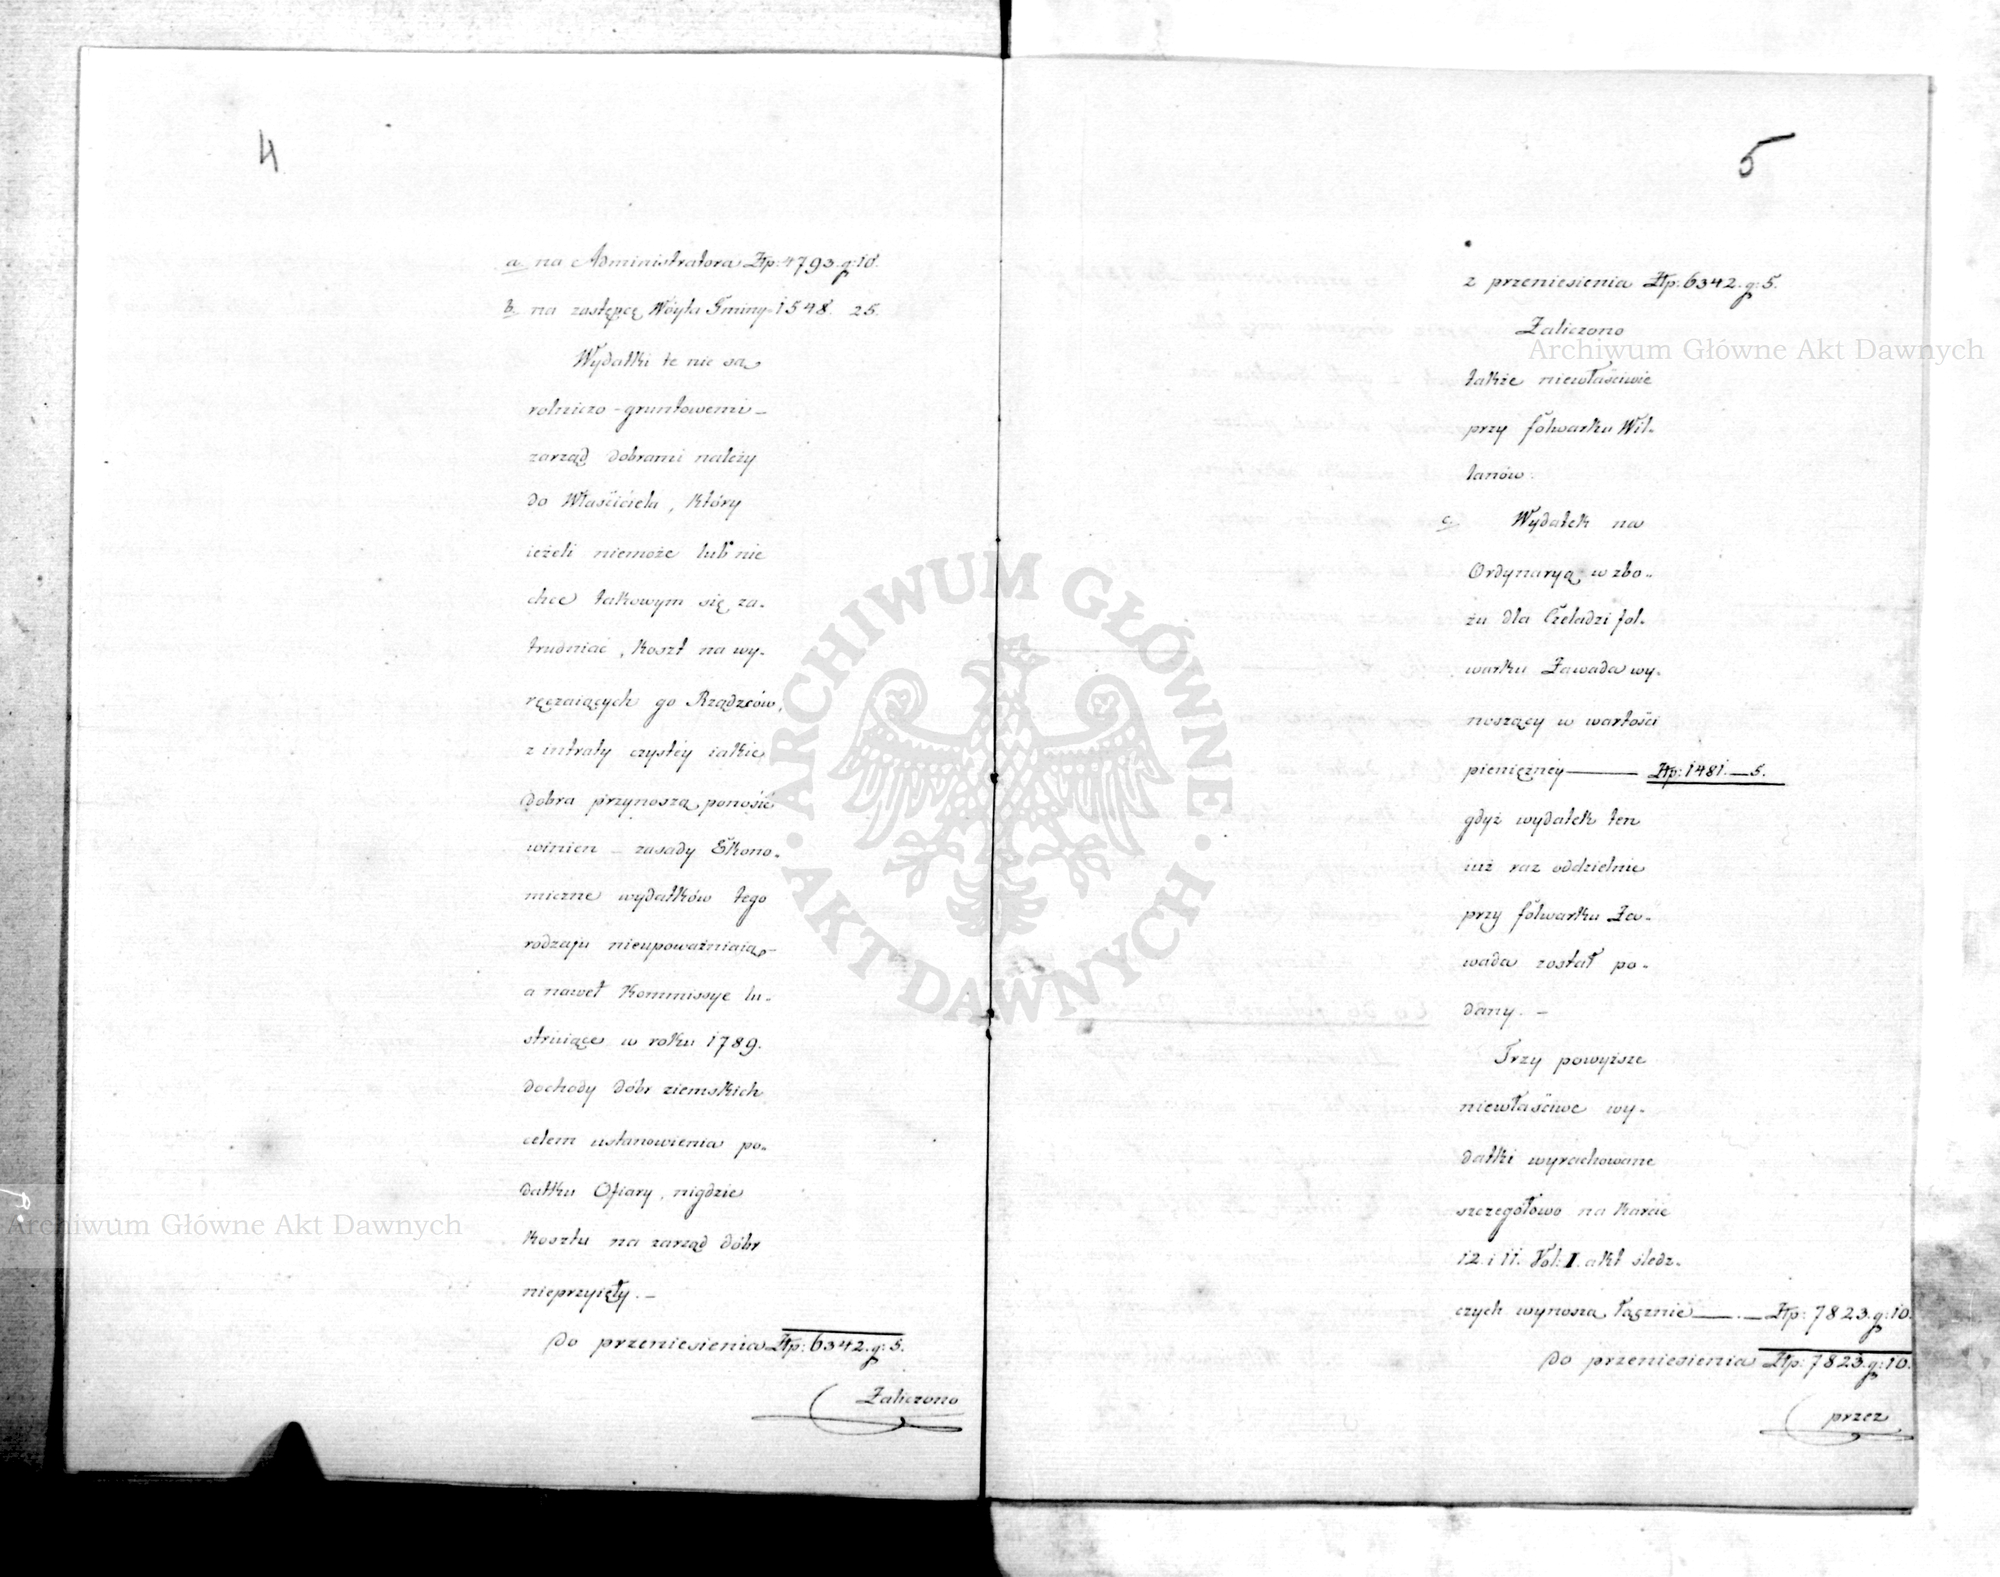 4
a na Administratora Złp: 4793. g: 10.
b. na zastępcę Wóyta Gminy - 1548. 25.
Wydatki te nie są
rolniczo - gruntowemi -
zarząd dobrami należy
do Właściciela, który
ieżeli niemoże lub nie
chce takowym się za-
trudniać, koszt na wy-
ręczaiących go Rządzców,
z intraty czystéy iakie
dobra przynoszą, ponosić
winien - zasady Ekono-
miczne wydatków tego
rodzaju nieupoważniaią -
a nawet Kommissye lu-
struiące w roku 1789.
dochody dóbr ziemskich
celem ustanowienia po-
datku Ofiary, nigdzie
kosztu na zarząd dóbr
nieprzyięły. -
Do przeniesienia Złp: 6342. g: 5.
Zaliczono
5
z przeniesienia Złp: 6342. g: 5.
Zaliczono
także niewłaściwie
przy folwarku Wil-
lanów.
c. Wydatek na
Ordynaryą w zbo-
żu dla Czeladzi fol-
warku Zawada wy-
noszący w wartości
pieniężnéy ——— Złp: 1481. — 5.
gdyż wydatek ten
iuż raz oddzielnie
przy folwarku Za-
wada został po-
dany. -
Trzy powyższe
niewłaściwe wy-
datki wyrachowane
szczegółowo na karcie
12. i 11. Vol: I. akt śledz-
czych wynoszą łącznie — . — Złp: 7823. g: 10.
Do przeniesienia Złp: 7823. g: 10.
przez
Archiwum Główne Akt Dawnych
Archiwum Główne Akt Dawnych
ARCHIWUM GŁÓWNE · AKT DAWNYCH ·